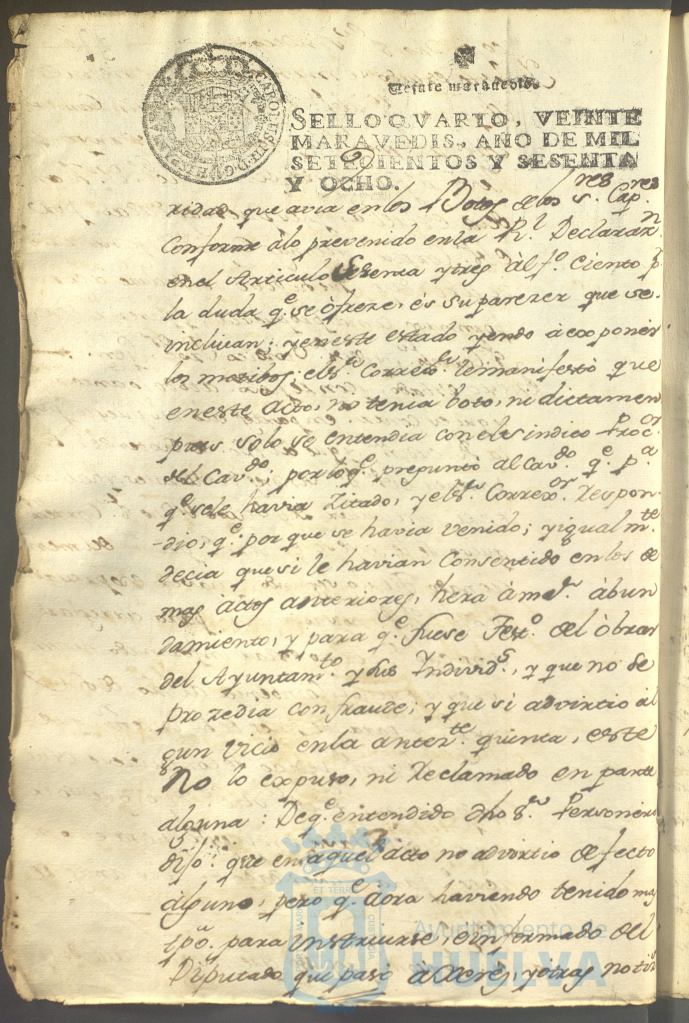 Veinte maravedis.
SELLO QVARTO, VEINTE
MARAVEDIS, AÑO DE MIL
SETECIENTOS Y SESENTA
Y OCHO.
ridad que avia en los Botos de los s.res Cap.res
Conforme à lo prevenido en la R.l Declaraz.n
en el Articulo sesenta y tres àl f.o Ciento p.r
la duda q.e se òfreze, és su parezer que se
incluian; y en este estado yendo à exponer
los motibos; el s.r Correx.or le manifestò que
en este Acto, no tenia boto, ni dictamen
pues solo se entendia con el sindico Proc.or
del Cav.do; por lo q.e preguntò al Cav.do q.e p.a
q.e se le havia Zitado, y el s.r Correx.or respon-
diò, q.e por que se havia venido; y igualm.te
decia que si le havian Consentido en los de
mas àctos anteriores, hera à maior àbun
damiento, y para q.e fuese Test.o del òbrar
del Ayuntam.to y sus Yndivid.s, y que no se
prozedia con fraude; y que si advirtio al
gun vicio en la anter.te quinta, este
No lo expuso, ni reclamado en parte
alguna: De q.e entendido dho s.r Personero
dijo: que en aquel àcto no advirtio defecto
alguno, pero q.e àora haviendo tenido mas
tpõ. para instruirse, è informado del
Diputado que pasò à Xerès, y otras noti
Ayuntamiento de
HUELVA